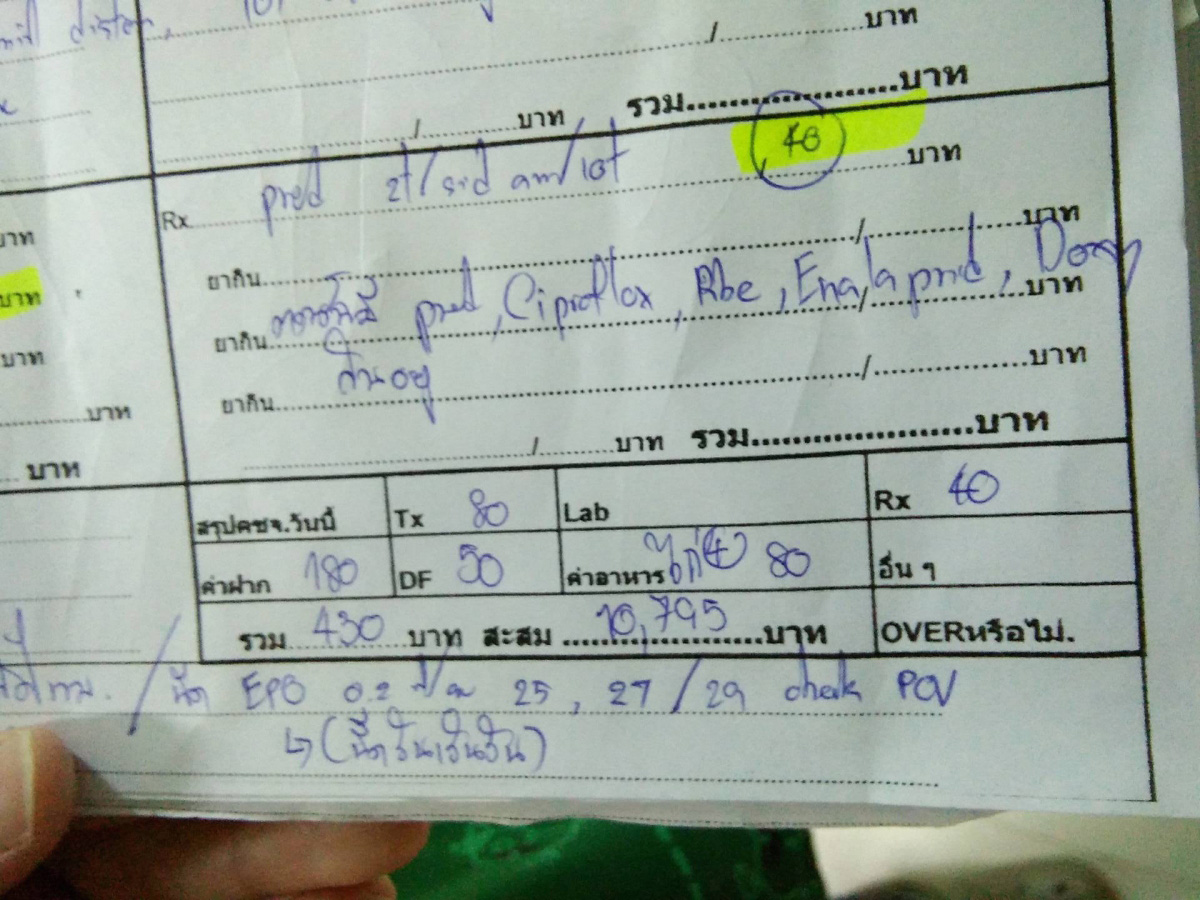 disten,
/..........บาท
/..........บาท รวม....................บาท
Rx pred 2t/sid am/10t 40 บาท
บาท
ยากิน....................../..........บาท
บาท
ยากิน pred, Ciproflox, Rbc, Enalapril, Doxy /..........บาท
บาท
ยากิน....................../..........บาท
บาท
/..........บาท รวม....................บาท
บาท
สรุปคชจ.วันนี้ Tx 80 Lab Rx 40
ค่าฝาก 180 DF 50 ค่าอาหาร ไก่(4) 80 อื่น ๆ
รวม 430 บาท สะสม 10,795 บาท OVERหรือไม่.
/ นัด EPO 0.2 25, 27/29 check PCV
↳(ฉีดวันเว้นวัน)